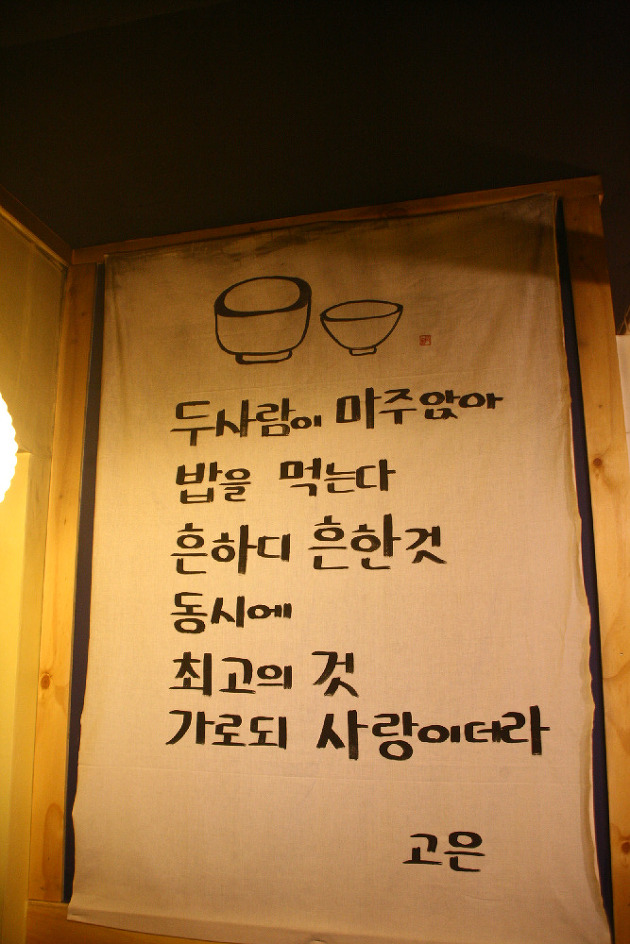 두사람이 마주앉아
밥을 먹는다
흔하디 흔한것
동시에
최고의 것
가로되 사랑이더라
고은